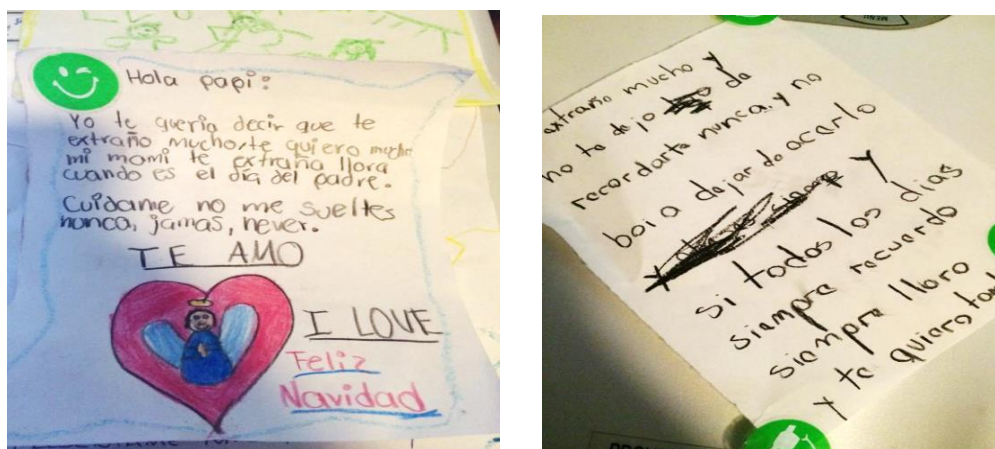 Hola papi:
Yo te quería decir que te
extraño mucho, te quiero mucho
mi mami te extraña llora
cuando es el día del padre.
Cuidame no me sueltes
nunca, jamas, never.
TE AMO
I LOVE
Feliz
Navidad
extraño mucho y
no te dejo de
recordarte nunca, y no
boi a dejar do acerlo
y
si todos los dias
siempre recuerdo
siempre lloro
y te quiero